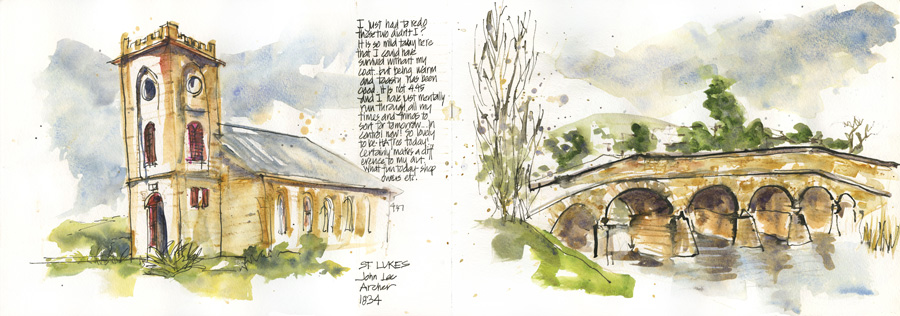 I just had to redo
these two didn't I?
It is so mild today here
that I could have
survived without my
coat.. but being warm
and toasty has been
good. It is not 4.45
and I have just mentally
run through all my
times and things to
sort for tomorrow... in
control now! So lovely
to be HATTED today!
Certainly makes a diff
erence to my art.
What fun today. shop
owners etc.
4.47
ST LUKES
John Lee
Archer
1834